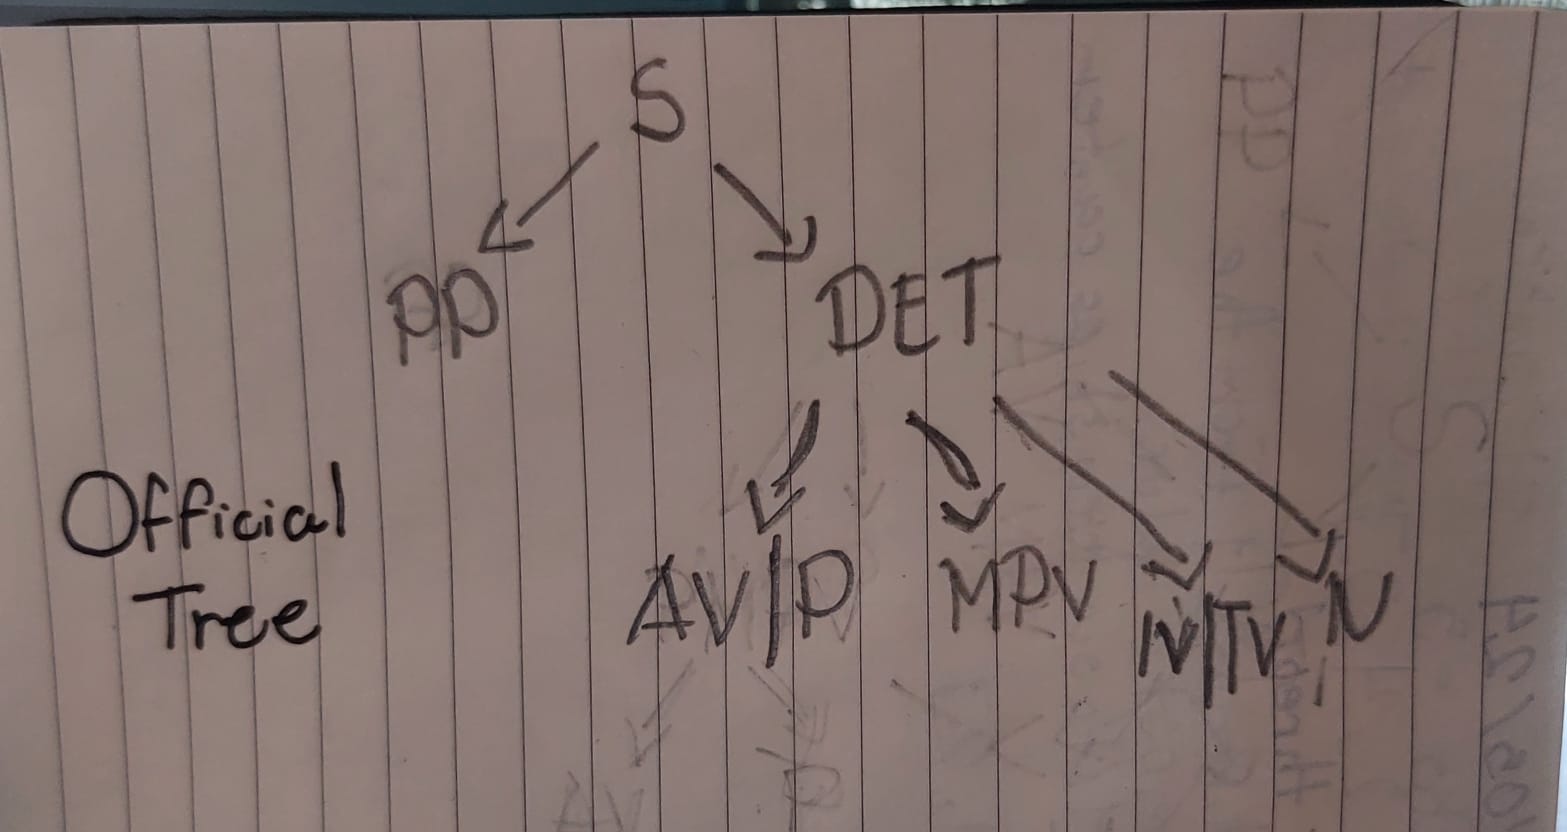 S
PP
DET
Official
Tree
AV/P
MPV
IV/TV
N